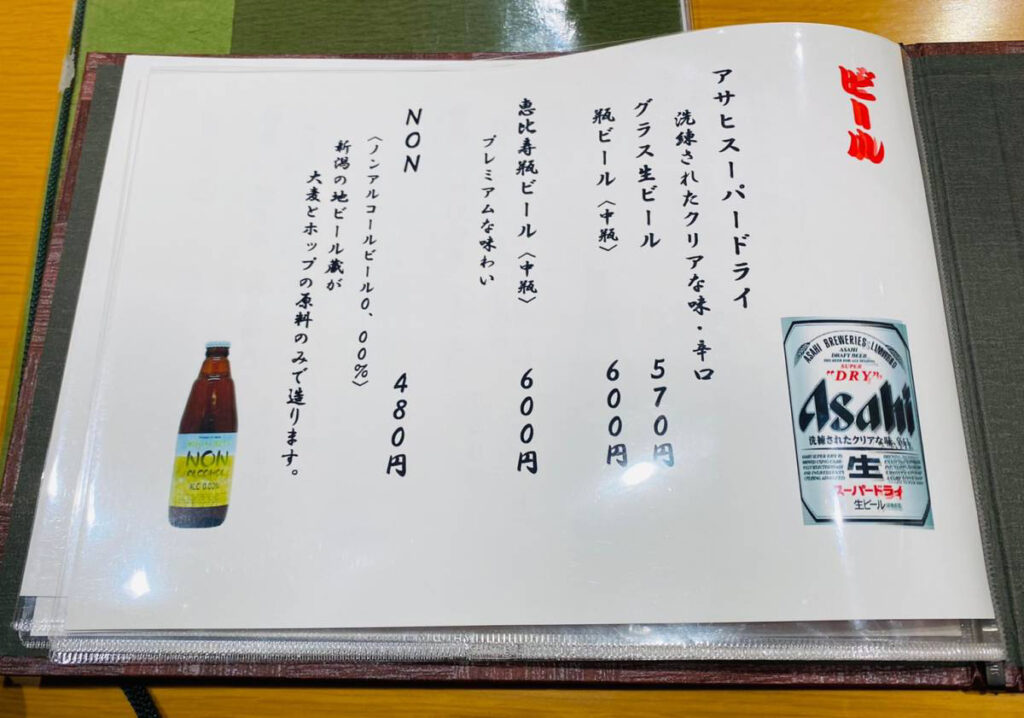 ビール
アサヒスーパードライ
洗練されたクリアな味・辛口
グラス生ビール 570円
瓶ビール〈中瓶〉 600円
恵比寿瓶ビール〈中瓶〉 600円
プレミアムな味わい
NON 480円
〈ノンアルコールビール0、00%〉
新潟の地ビール蔵が
大麦とホップの原料のみで造ります。
ASAHI BREWERIES LIMITED
ASAHI
DRAFT BEER
SUPER
"DRY"
Asahi
洗練されたクリアな味、辛口
生
スーパードライ
生ビール
NON
ALCOHOL
ALC 0.00%